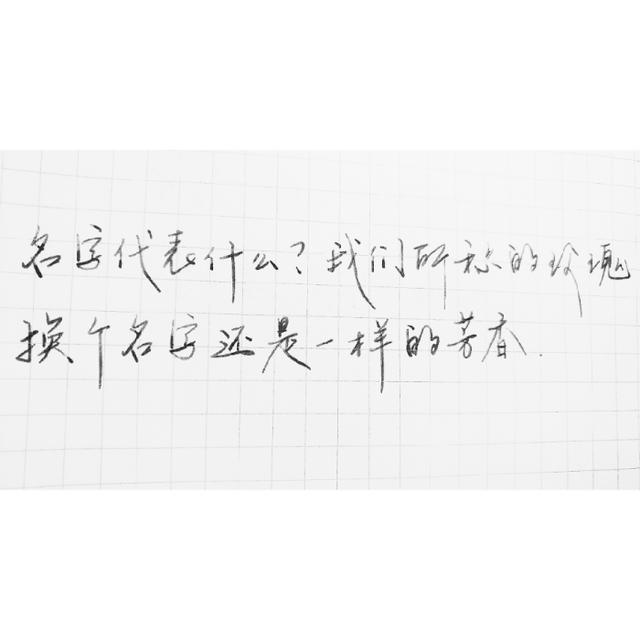 名字代表什么?我们所称的玫瑰
换个名字还是一样的芳香.